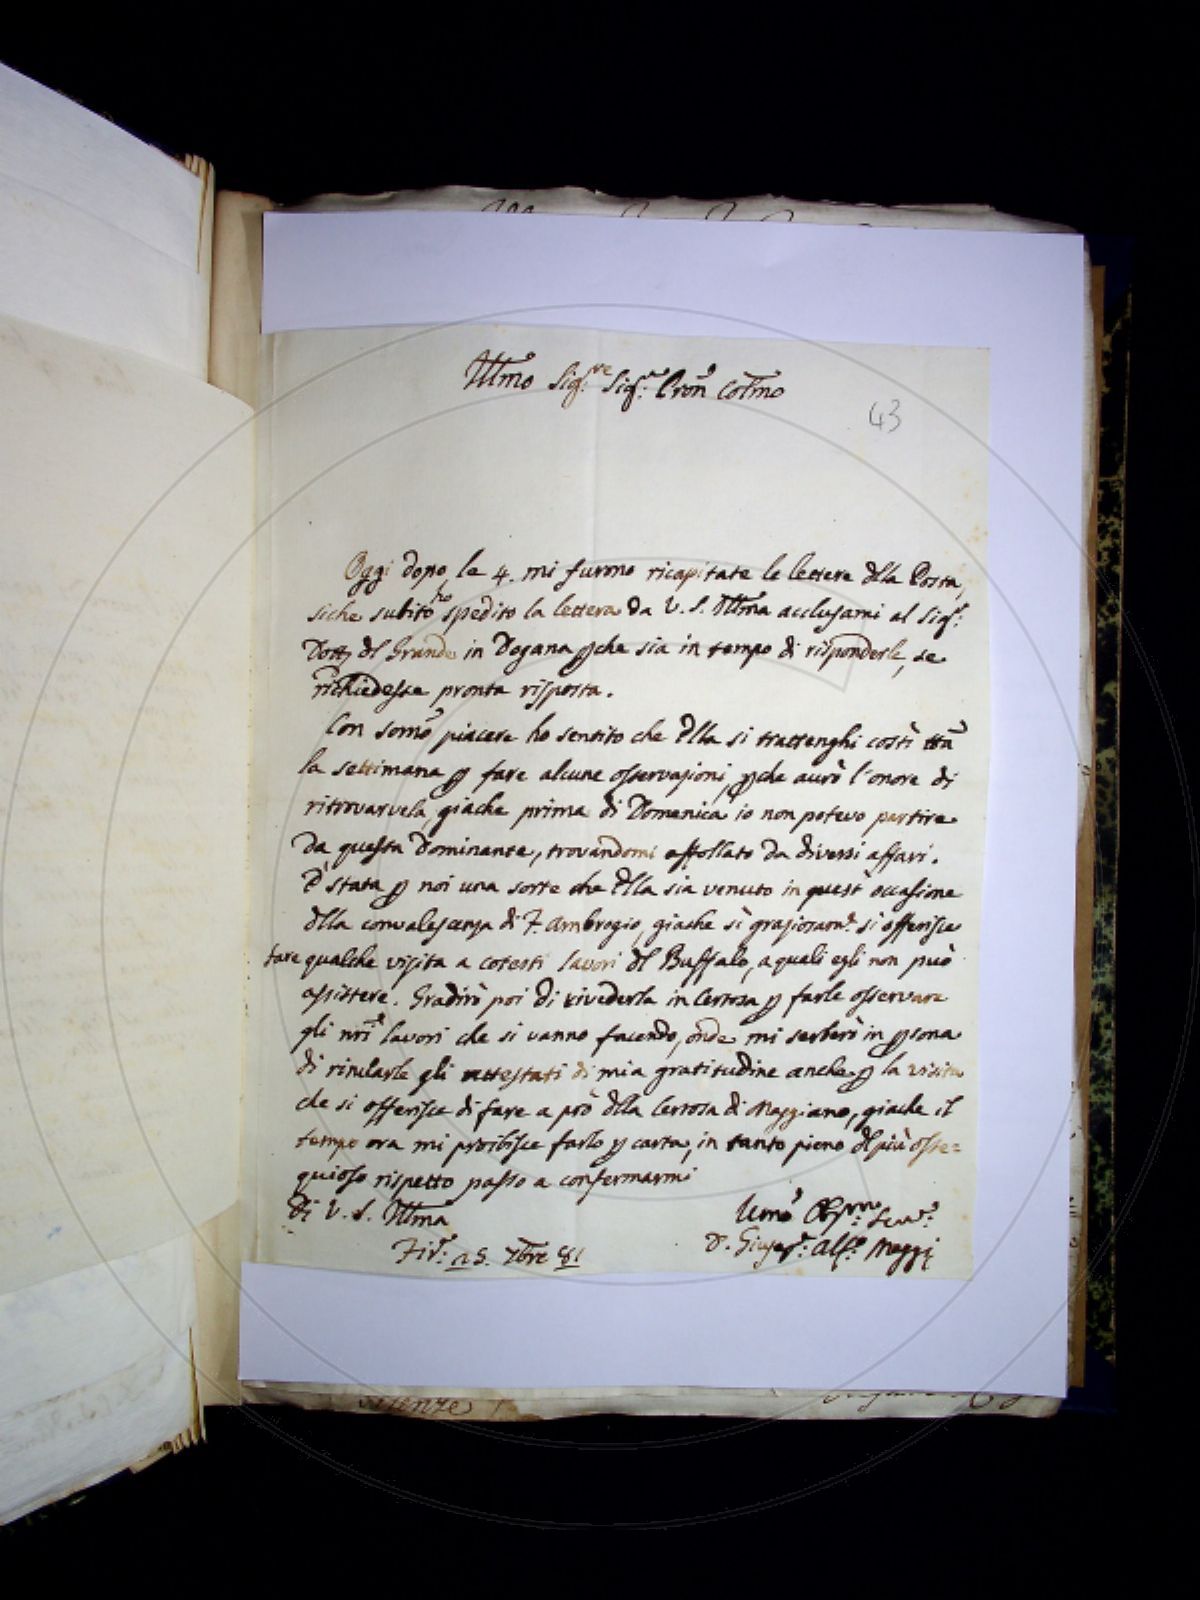 Illmo Sig:re Sig:r Pron Colmo
43
Oggi dopo le 4. mi furono ricapitate le lettere dlla Posta,
siche subito ho spedito la lettera da V. S. Illma acclusami al Sig:r
Dott dl Grande in Dogana pche sia in tempo di risponderle, se
richiedesse pronta risposta.
Con somo piacere ho sentito che Ella si trattenghi costì tta
la settimana p fare alcune osservazioni, pche avrò l'onore di
ritrovarvela, giache prima di Domenica io non potevo partire
da questa Dominante, trovandomi affollato da diversi affari.
È stata p noi una sorte che Ella sia venuto in quest'occasione
dlla convalescenza di F. Ambrogio, giache sì graziosam:e si offerisce
fare qualche visita a cotesti lavori dl Buffalo, a quali egli non può
assistere. Gradirò poi di rivederla in Certosa p farle osservare
gli nri lavori che si vanno facendo, onde mi serberò in psona
di rinularle gli attestati di mia gratitudine anche p la visita
che si offerisce di fare a prò dlla Certosa di Maggiano, giache il
tempo ora mi proibisce farlo p carta, in tanto pieno dl più osse=
quioso rispetto passo a confermarmi
di V. S. Illma
Umo Obb:mo Serv:e
D. Gius:e Alf:o Maggi
Fir: 25. 7bre 81